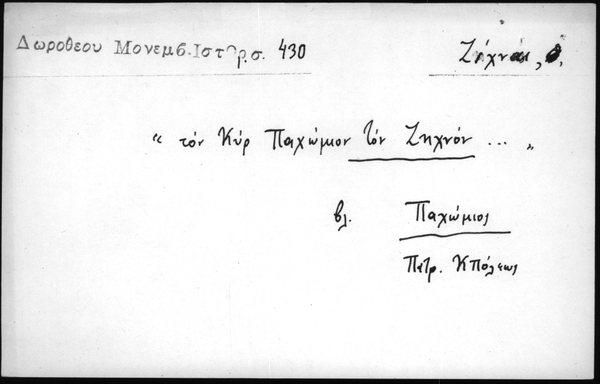 Δωροθεου Μονεμβ.Ιστορ.σ. 430
« τόν Κύρ Παχώμιον τόν Ζηχνόν ... »
βλ. Παχώμιος
Πατρ. Κπόλεως